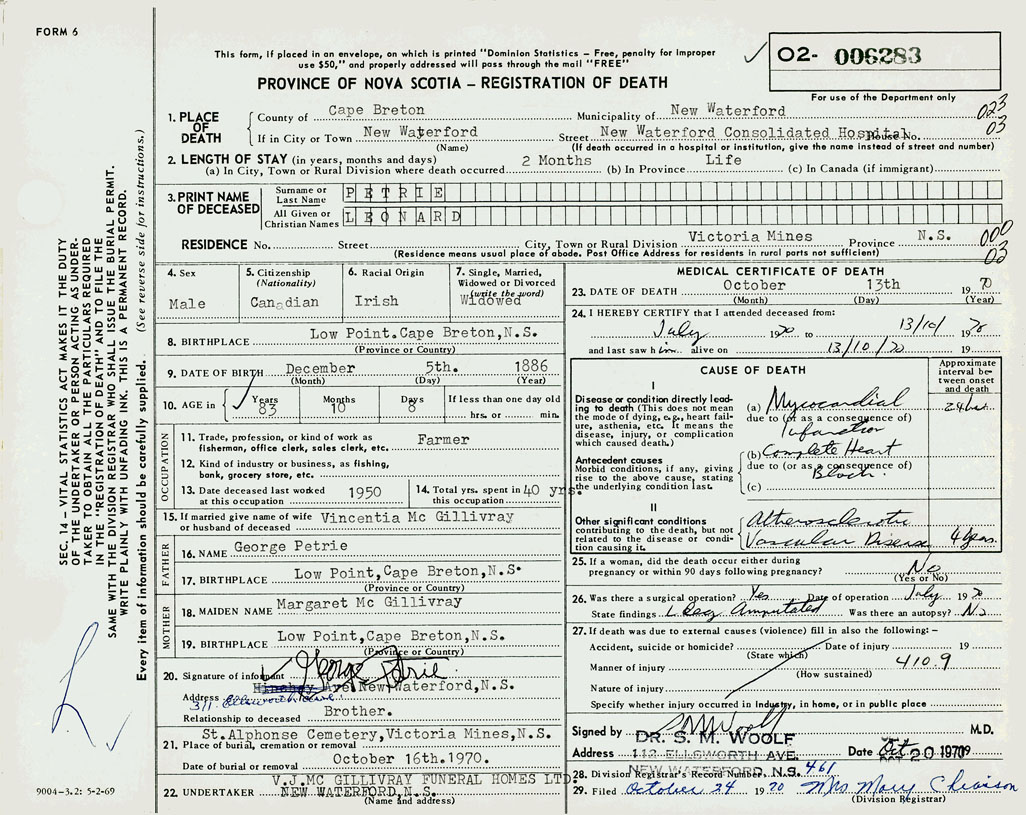 FORM 6
This form, if placed in an envelope, on which is printed "Dominion Statistics – Free, penalty for improper
use $50," and properly addressed will pass through the mail "FREE"
PROVINCE OF NOVA SCOTIA – REGISTRATION OF DEATH
O2- 006283
For use of the Department only
1. PLACE OF DEATH
County of Cape Breton Municipality of New Waterford 023
If in City or Town New Waterford Street New Waterford Consolidated Hospital House No. 03
(Name) (If death occurred in a hospital or institution, give the name instead of street and number)
2. LENGTH OF STAY (in years, months and days)
(a) In City, Town or Rural Division where death occurred 2 Months (b) In Province Life (c) In Canada (if immigrant)
3. PRINT NAME OF DECEASED
Surname or Last Name PETRIE
All Given or Christian Names LEONARD
RESIDENCE No. Street City, Town or Rural Division Victoria Mines Province N.S. 000
(Residence means usual place of abode. Post Office Address for residents in rural parts not sufficient) 03
4. Sex
Male
5. Citizenship
(Nationality)
Canadian
6. Racial Origin
Irish
7. Single, Married,
Widowed or Divorced
(write the word)
Widowed
8. BIRTHPLACE Low Point.Cape Breton,N.S.
(Province or Country)
9. DATE OF BIRTH December 5th. 1886
(Month) (Day) (Year)
10. AGE in Years 83 Months 10 Days 8 If less than one day old
hrs. or min.
OCCUPATION
11. Trade, profession, or kind of work as
fisherman, office clerk, sales clerk, etc. Farmer
12. Kind of industry or business, as fishing,
bank, grocery store, etc.
13. Date deceased last worked
at this occupation 1950
14. Total yrs. spent in
this occupation 40 yrs.
15. If married give name of wife
or husband of deceased Vincentia Mc Gillivray
FATHER
16. NAME George Petrie
17. BIRTHPLACE Low Point,Cape Breton,N.S.
(Province or Country)
MOTHER
18. MAIDEN NAME Margaret Mc Gillivray
19. BIRTHPLACE Low Point,Cape Breton,N.S.
(Province or Country)
20. Signature of informant George Petrie
Address Ave New Waterford,N.S.
311 Ellsworth Ave
Relationship to deceased Brother.
St.Alphonse Cemetery,Victoria Mines,N.S.
21. Place of burial, cremation or removal
Date of burial or removal October 16th.1970.
V.J.MC GILLIVRAY FUNERAL HOMES LTD.
22. UNDERTAKER NEW WATERFORD,N.S.
(Name and address)
MEDICAL CERTIFICATE OF DEATH
23. DATE OF DEATH October 13th 1970
(Month) (Day) (Year)
24. I HEREBY CERTIFY that I attended deceased from:
July 1970 to 13/10/ 1970
and last saw him alive on 13/10/70 19
CAUSE OF DEATH
Approximate
interval be-
tween onset
and death
I
Disease or condition directly lead-
ing to death (This does not
mean the mode of dying, e.g., heart fail-
ure, asthenia, etc. It means the
disease, injury, or complication
which caused death.)
(a) Myocardial 24 hrs.
due to (or as a consequence of)
Infarction
Antecedent causes
Morbid conditions, if any, giving
rise to the above cause, stating
the underlying condition last.
(b) Complete Heart
due to (or as a consequence of)
Block.
(c)
II
Other significant conditions
contributing to the death, but not
related to the disease or condi-
tion causing it.
Atherosclerotic
Vascular Disease 4 years.
25. If a woman, did the death occur either during
pregnancy or within 90 days following pregnancy? No
(Yes or No)
26. Was there a surgical operation? Yes Date of operation July 1970
State findings L Leg Amputated Was there an autopsy? No
27. If death was due to external causes (violence) fill in also the following:–
Accident, suicide or homicide? Date of injury 19
(State which)
Manner of injury 410.9
(How sustained)
Nature of injury
Specify whether injury occurred in Industry, in home, or in public place
Signed by S M Woolf M.D.
DR. S. M. WOOLF
Address 112 ELLSWORTH AVE. Date Oct 20 1970
NEW WATERFORD, N.S.
28. Division Registrar's Record Number 461
29. Filed October 24 1970 Mrs Mary
(Division Registrar)
SEC. 14 – VITAL STATISTICS ACT MAKES IT THE DUTY
OF THE UNDERTAKER OR PERSON ACTING AS UNDER-
TAKER TO OBTAIN ALL THE PARTICULARS REQUIRED
IN THE "REGISTRATION OF DEATH" AND TO FILE THE
SAME WITH THE DIVISION REGISTRAR WHO SHALL ISSUE THE BURIAL PERMIT.
WRITE PLAINLY WITH UNFADING INK. THIS IS A PERMANENT RECORD.
Every item of information should be carefully supplied. (See reverse side for instructions.)
9004–3.2: 5-2-69